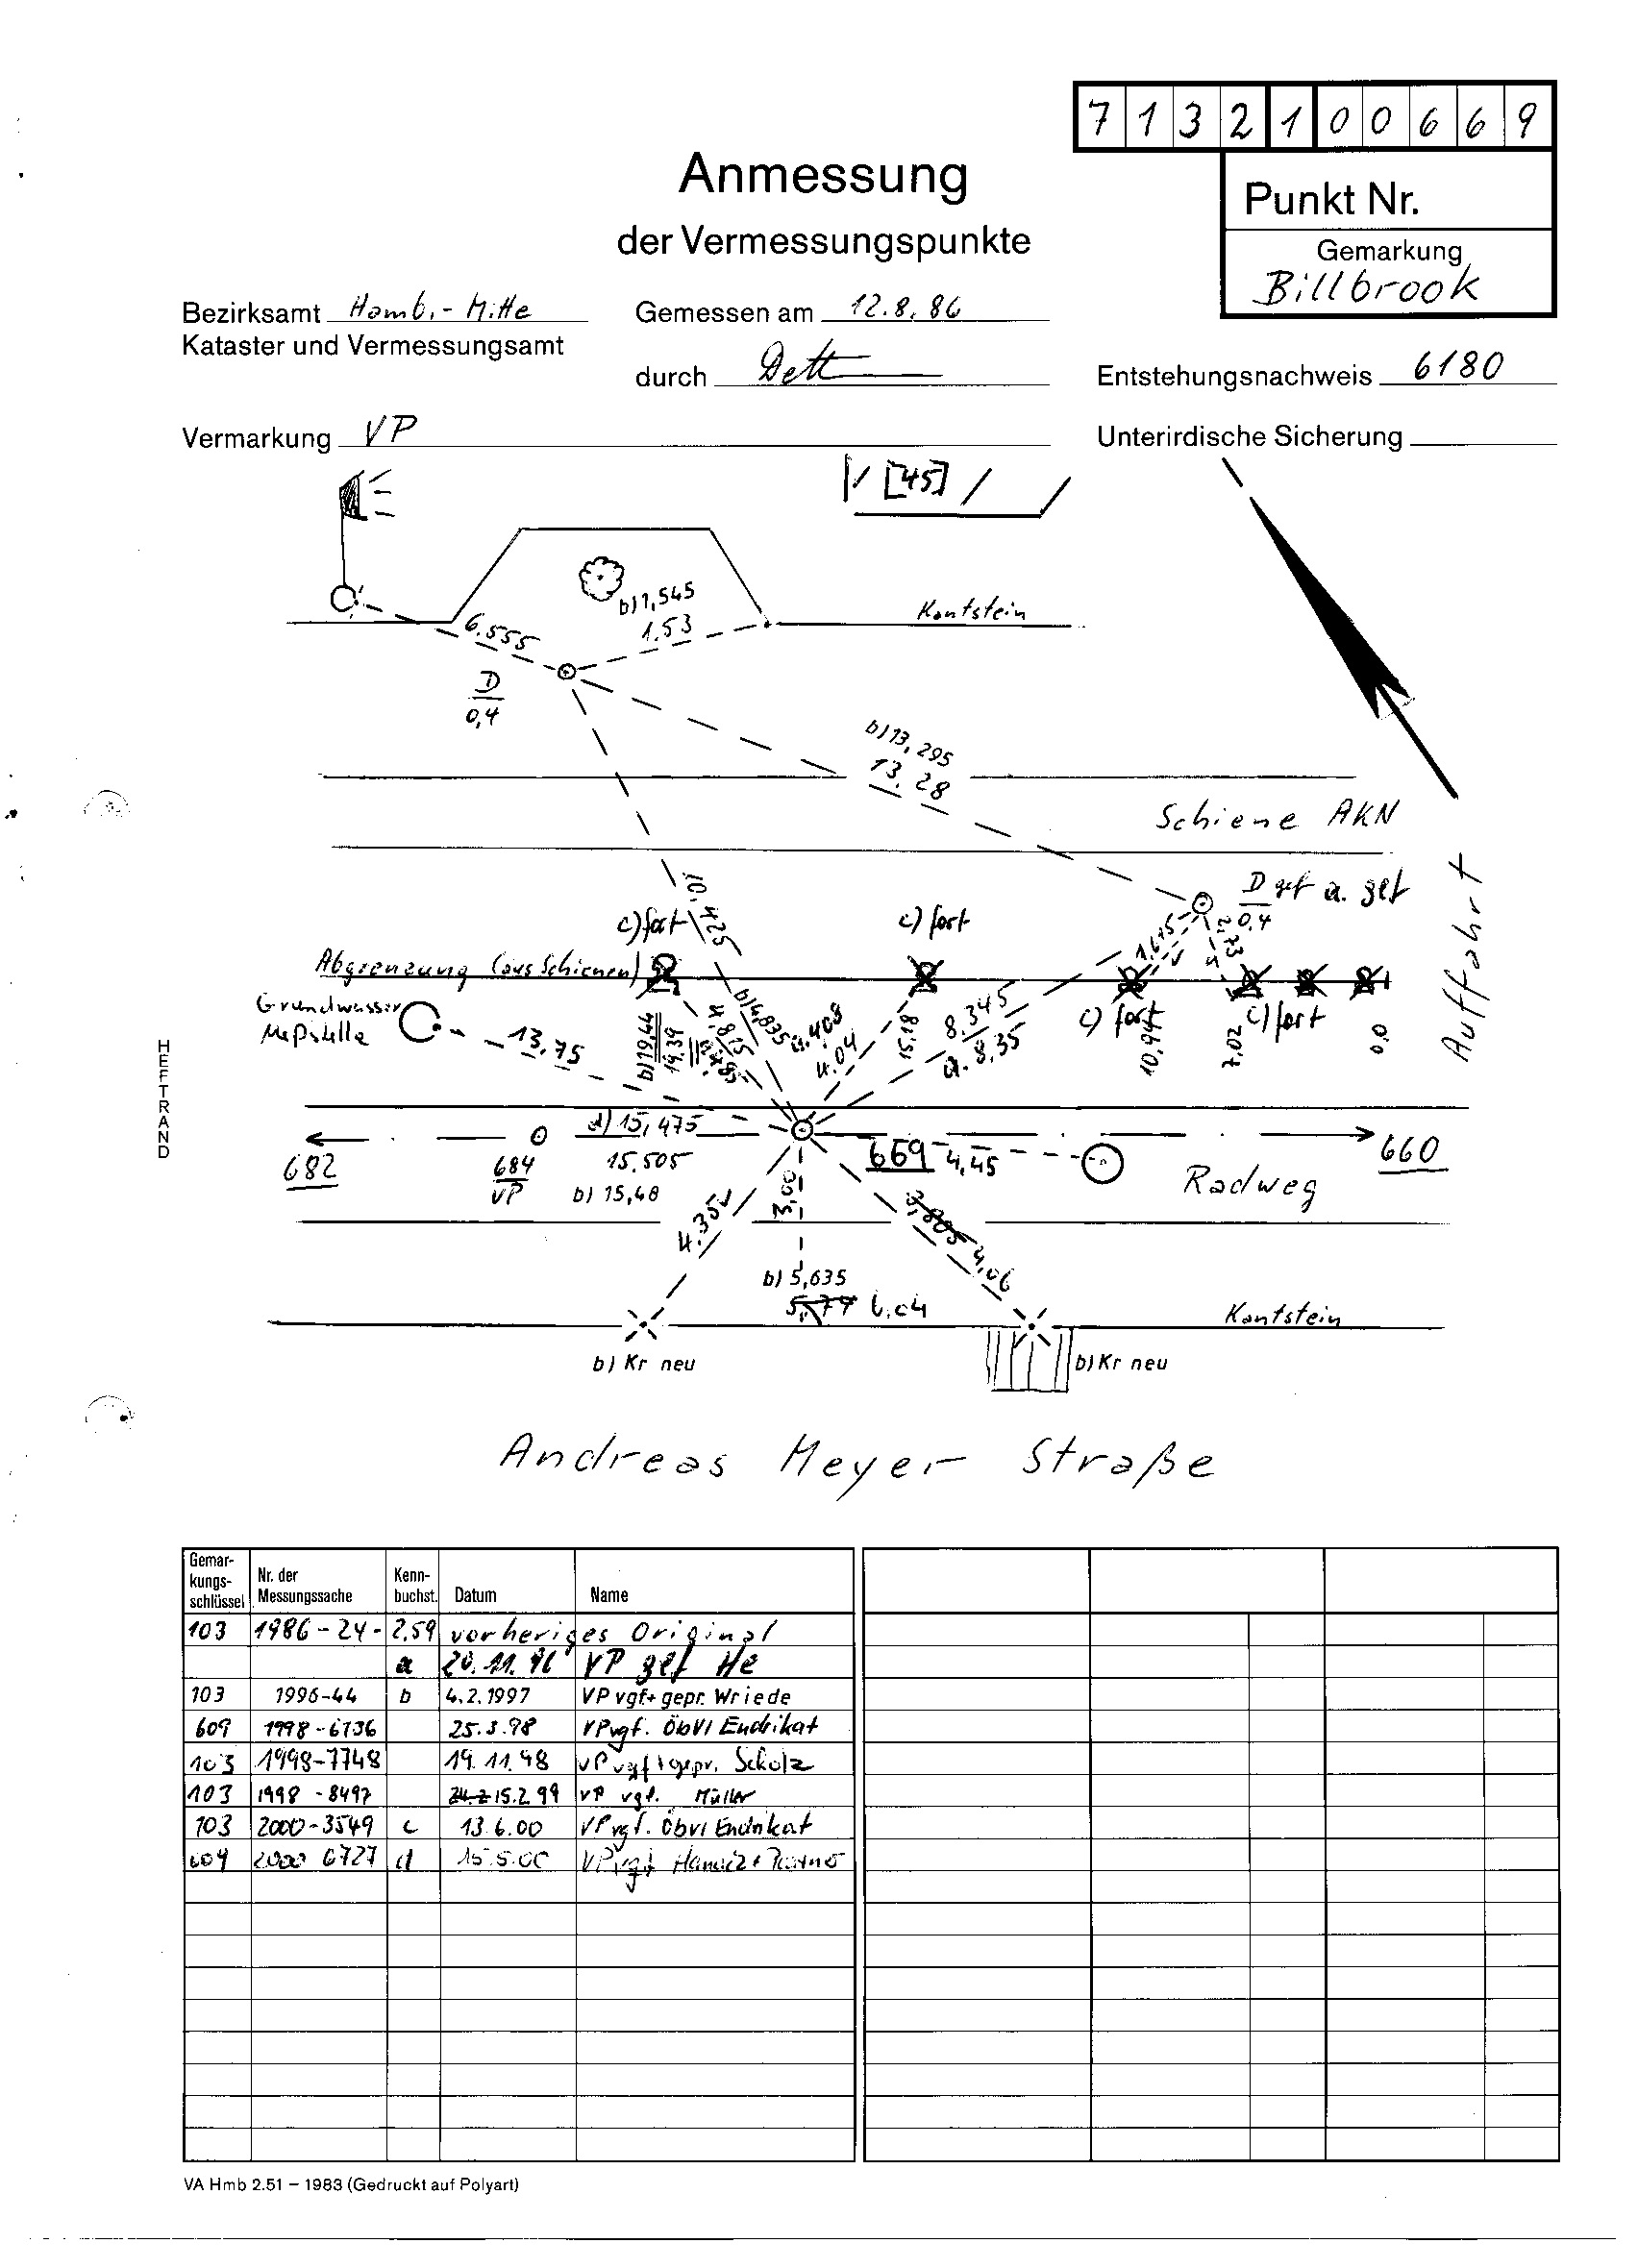 7 1 3 2 1 0 0 6 6 9
Anmessung
der Vermessungspunkte
Punkt Nr.
Gemarkung
Billbrook
Bezirksamt Hamb.-Mitte
Kataster und Vermessungsamt
Gemessen am 12.8.86
durch
Entstehungsnachweis 6180
Vermarkung VP
Unterirdische Sicherung
[45]
b) 1,545
1.53
Kantstein
6.555
D
0,4
b) 13,295
13.28
Schiene AKN
D gef a. gef
0,4
10,425
c) fort
c) fort
1.645
2,73
Auffahrt
Abgrenzung (aus Schienen)
Grundwasser
Meßstelle
13,75
b) 19,44
19.39
4,815
b) 4,835
a. 4.08
4.04
15,18
8.345
a. 8,35
c) fort
10,94
7,02
c) fort
0,0
HEFTRAND
682
684
VP
d) 15,475
15.505
b) 15,48
669
4,45
660
Radweg
4.35
3,00
3,805 4,06
b) 5,635
5,79 6,04
Kantstein
b) Kr neu
b) Kr neu
Andreas Meyer Straße
Gemar-
kungs-
schlüssel
Nr. der
Messungssache
Kenn-
buchst.
Datum
Name
103 1986-24-2,59 vorheriges Original
a 20.11.96 VP gef He
103 1996-44 b 4.2.1997 VP vgf.+gepr. Wriede
609 1998-6736 25.3.98 VP vgf. ÖbVI Endrikat
103 1998-7748 19.11.98 VP vgf+gepr. Scholz
103 1998-8497 24.2 15.2.99 VP vgf. Müller
103 2000-3549 c 13.6.00 VP vgf. ÖbVI Endrikat
609 2000 6727 d 15.5.00 VP vgf
VA Hmb 2.51 – 1983 (Gedruckt auf Polyart)